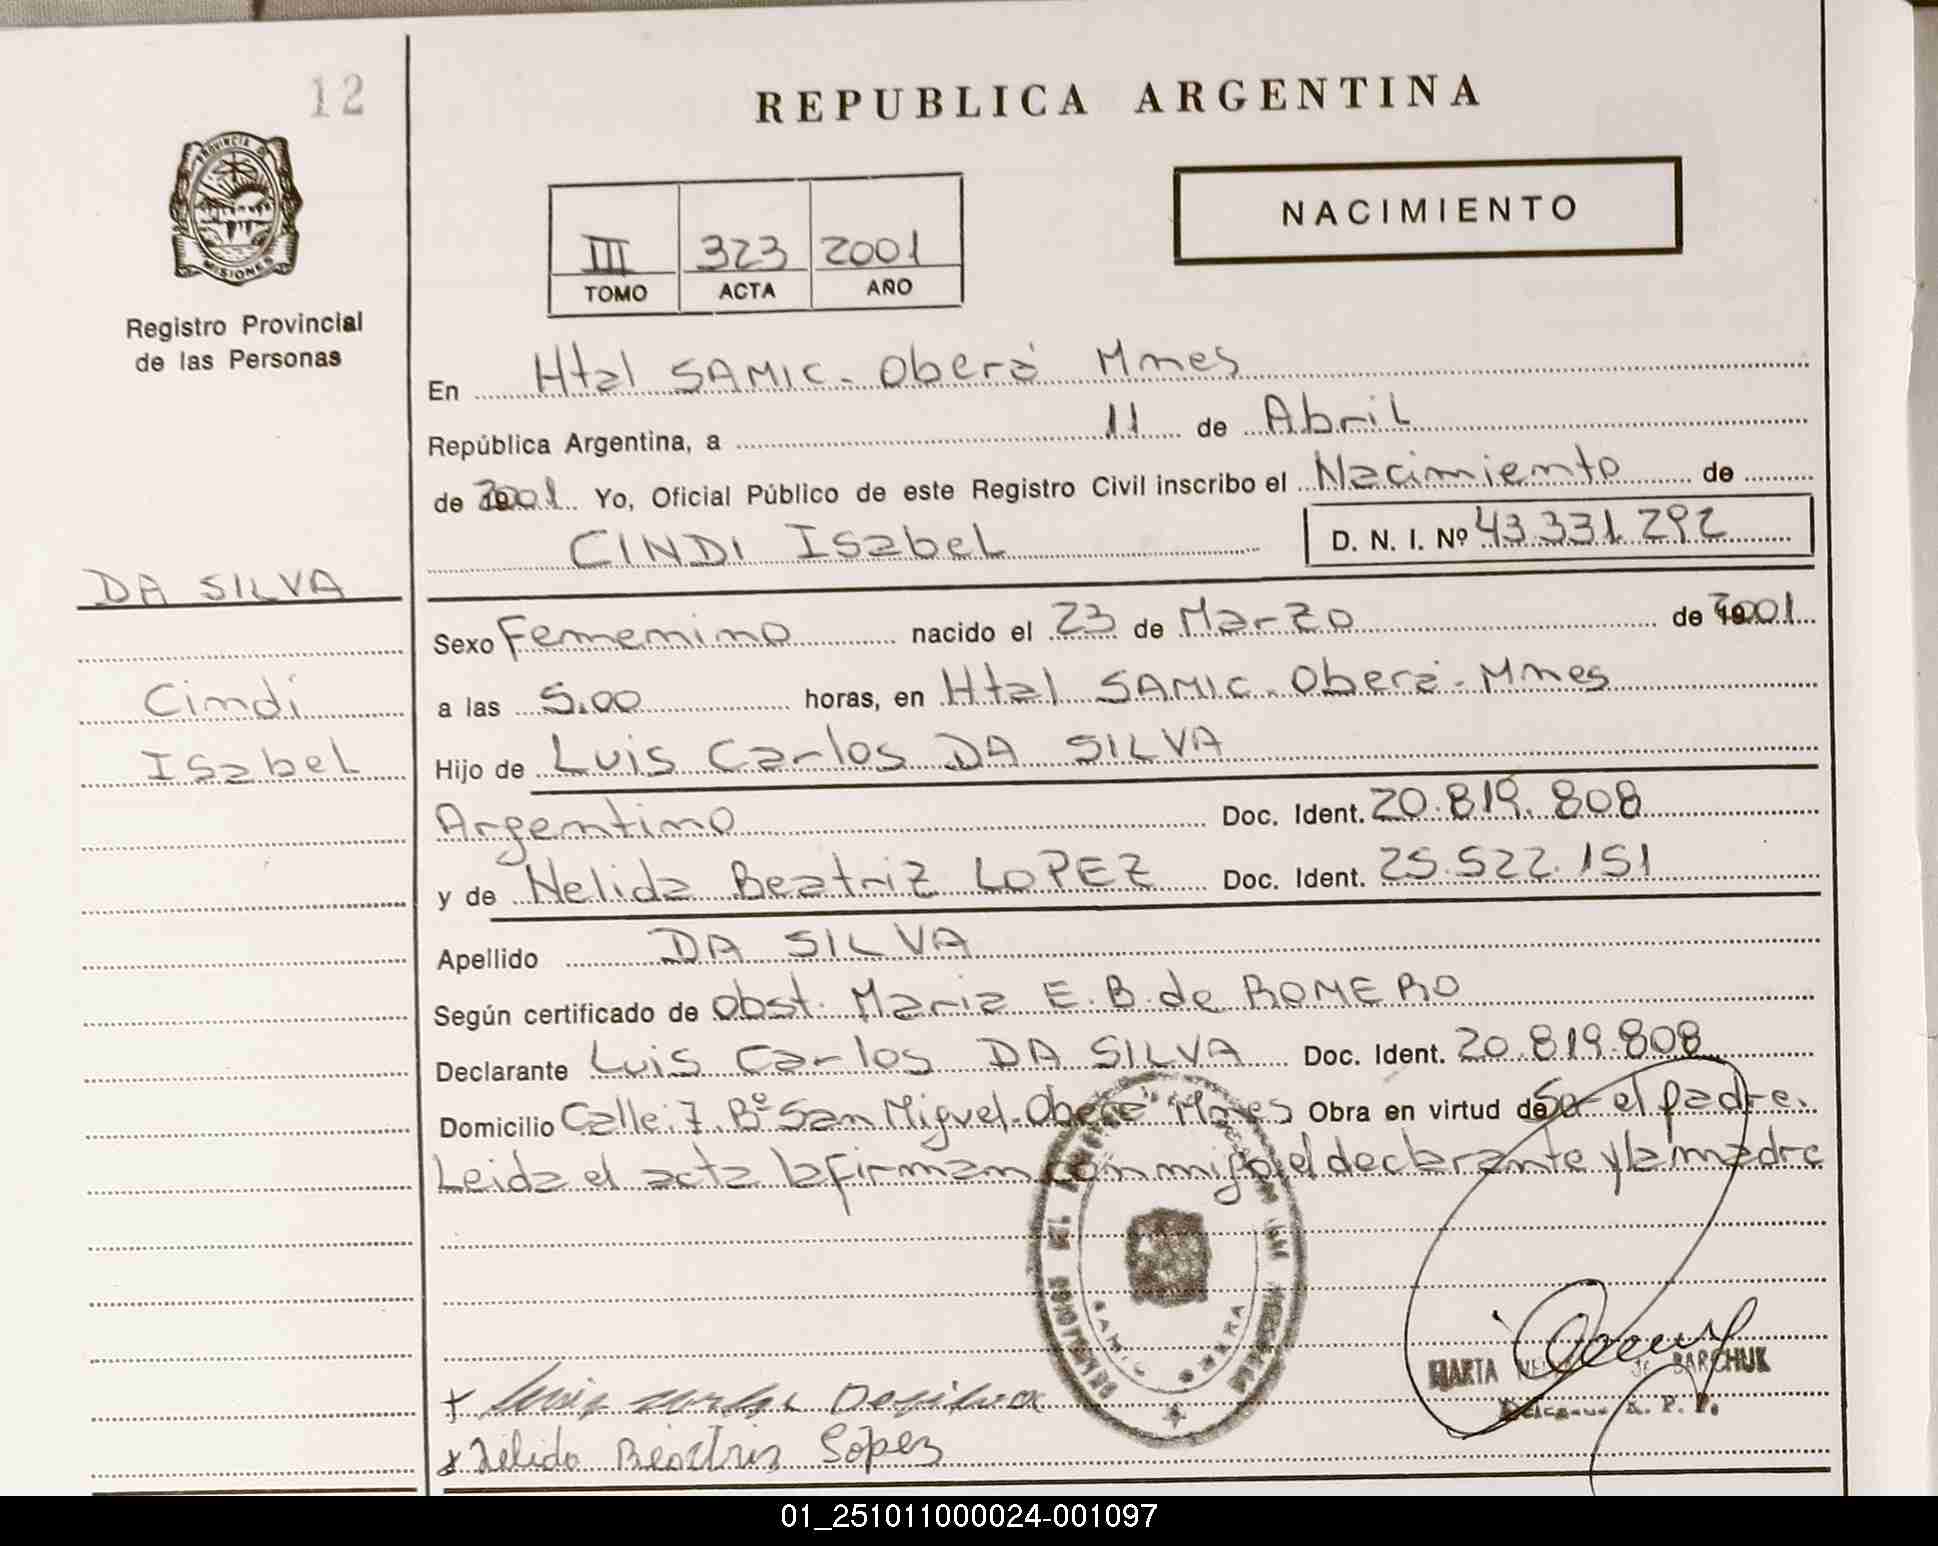 12
REPUBLICA ARGENTINA
PROVINCIA D
MISIONES
Registro Provincial
de las Personas
NACIMIENTO
III 323 2001
TOMO ACTA AÑO
En Htal SAMIC - Oberá Mnes
República Argentina, a 11 de Abril
de 2001. Yo, Oficial Público de este Registro Civil inscribo el Nacimiento de
CINDI Isabel D. N. I. Nº 43.331.292
DA SILVA
Cindi
Isabel
Sexo Femenino nacido el 23 de Marzo de 2001
a las 5.00 horas, en Htal SAMIC - Oberá - Mnes
Hijo de Luis Carlos DA SILVA
Argentino Doc. Ident. 20.819.808
y de Nelida Beatriz LOPEZ Doc. Ident. 25.522.151
Apellido DA SILVA
Según certificado de Obst. Maria E. B. de ROMERO
Declarante Luis Carlos DA SILVA Doc. Ident. 20.819.808
Domicilio Calle: 7. Bº San Miguel - Oberá Mnes Obra en virtud de Ser el padre.
Leida el acta la firman conmigo, el declarante y la madre
SAMIC OBERA
MARTA de BARCHUK
R. P. P.
x Luis Carlos Dasilva
x Nélida Beatris López
01_251011000024-001097